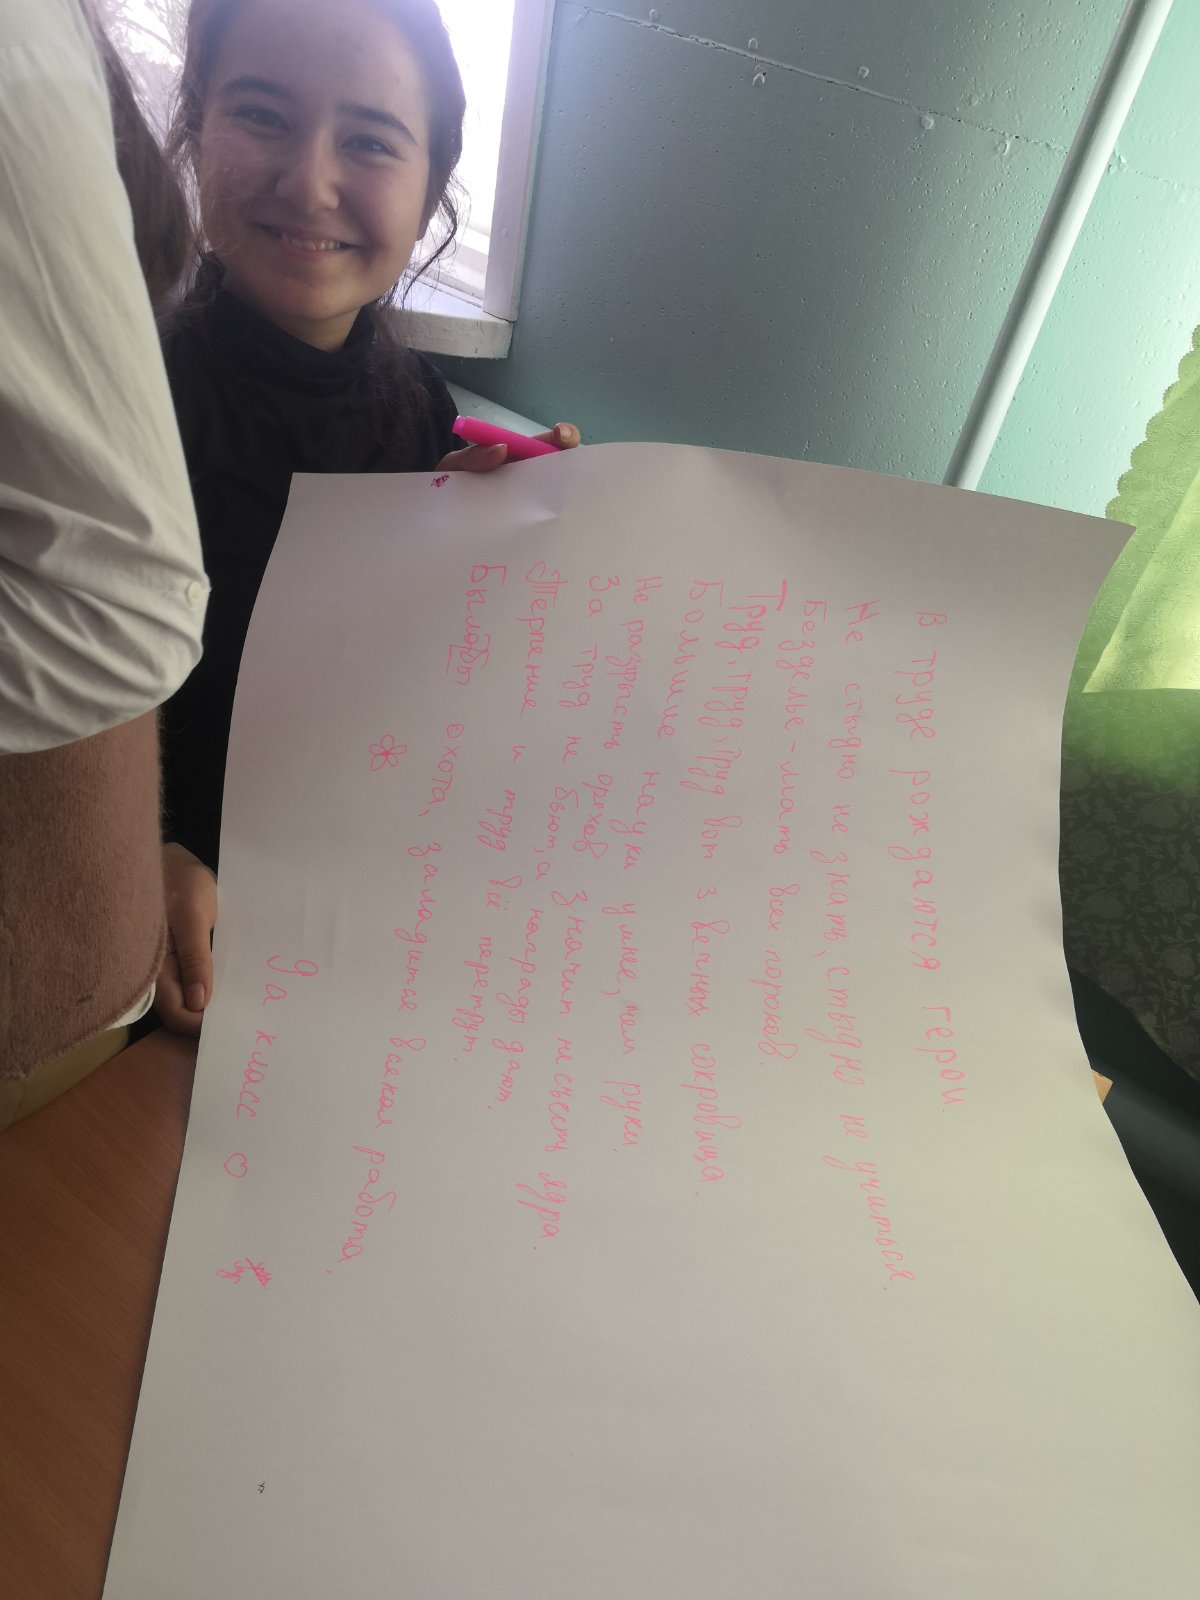 В труде рождаются герои.
Не стыдно не знать, стыдно не учиться.
Безделье - мать всех пороков.
Труд, труд, труд вот 3 вечных сокровища.
Больше науки умнее, чем руки.
Не разгрысть орехов значит не съесть ядра.
За труд не бьют, а награды дают.
Терпение и труд всё перетрут.
Была бы охота, заладится всякая работа.
9а класс ♡